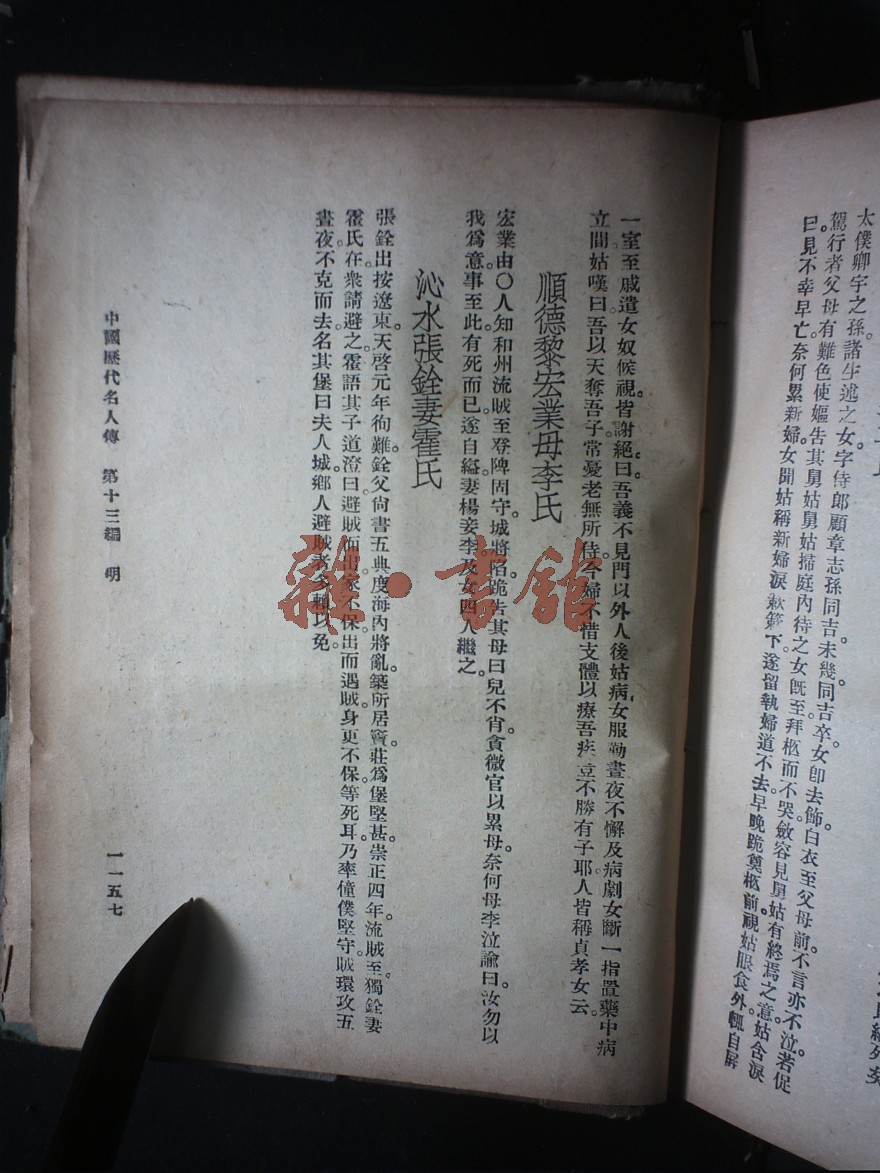 太僕卿宇之孫諸生述之女字侍郎顧章志孫同吉未幾。同吉卒。女卽去飾白衣至父母前。不言亦不泣。若促
駕行者父母有難色使嫗告其舅姑舅姑掃庭內待之女旣至拜柩而不哭斂容見舅姑有終焉之意。姑含淚
曰見不幸早亡奈何累新婦女聞姑稱新婦淚簌簌下遂留執婦道不去早晚跪奠柩前。視姑眼食外。輒自屏
一室至戚遣女奴候視。皆謝絕。曰。吾義不見門以外人後姑病。女服勤晝夜不懈及病劇女斷一指置藥中病
立間姑嘆曰。吾以天奪吾子。常憂老無所恃今婦不惜支體以療吾疾。豈不勝有子耶。人皆稱貞孝女云。
順德黎宏業母李氏
宏業由〇人知和州流賊至登陴固守。城將陷。跪告其母曰兒不肖貪微官以累母。奈何母李泣諭曰。汝勿以
我爲意事至此。有死而已。遂自縊妻楊妾李。及女四人繼之。
沁水張銓妻霍氏
張銓出按遼東。天啓元年徇難銓父尚書五典。度海內將亂。築所居竇莊爲堡堅甚。崇正四年。流賊至。獨銓妻
霍氏在。衆請避之。霍語其子道澄曰。避賊而出家不保。出而遇賊。身更不保。等死耳。乃率僮僕堅守。賊環攻五
晝夜不克而去。名其堡曰夫人城。鄉人避賊者多賴以免。
中國歷代名人傳 第十三編 明
一一五七
雜·書館